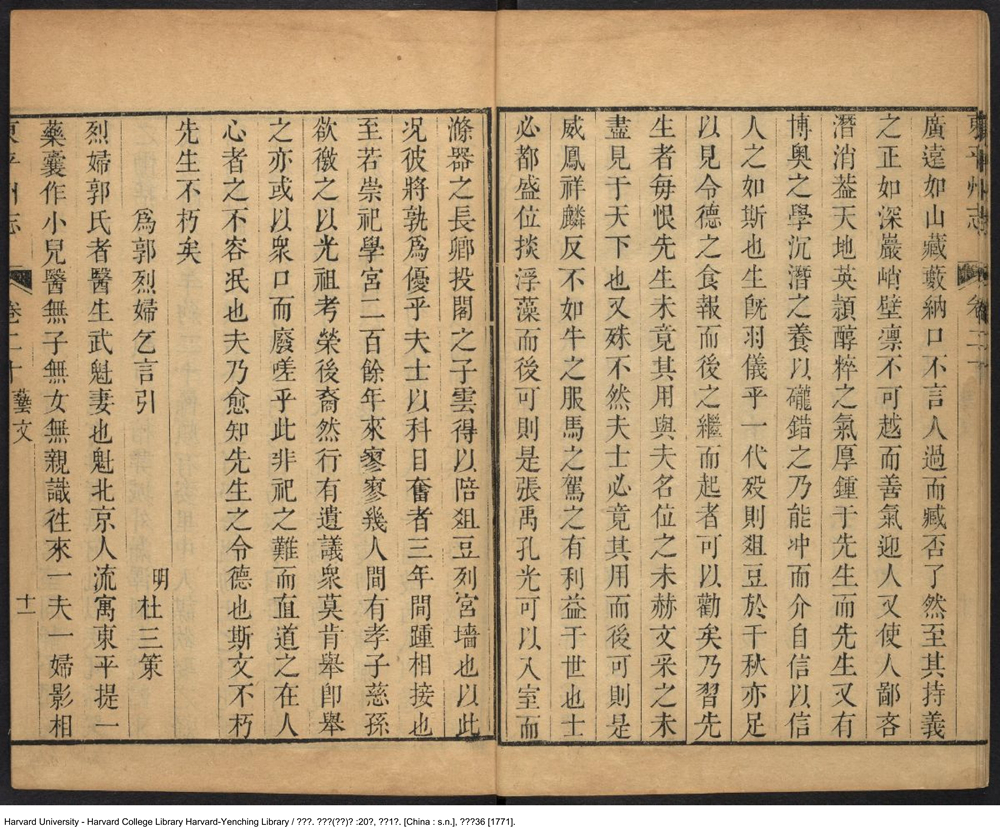 東平州志 卷二十
廣遠如山藏藪納口不言人過而臧否了然至其持義
之正如深巖峭壁凛不可越而善氣迎人又使人鄙吝
潛消葢天地英頴醇粹之氣厚鍾于先生而先生又有
博奥之學沉潛之養以礲錯之乃能冲而介自信以信
人之如斯也生旣羽儀乎一代殁則俎豆於千秋亦足
以見令德之食報而後之繼而起者可以勸矣乃習先
生者每恨先生未竟其用與夫名位之未赫文采之未
盡見于天下也又殊不然夫士必竟其用而後可則是
威鳳祥麟反不如牛之服馬之駕之有利益于世也士
必都盛位掞浮藻而後可則是張禹孔光可以入室而
滌器之長卿投閣之子雲得以陪俎豆列宮墻也以此
况彼將孰爲優乎夫士以科目奮者三年間踵相接也
至若崇祀學宮二百餘年來寥寥幾人間有孝子慈孫
欲徼之以光祖考榮後裔然行有遺議衆莫肯舉卽舉
之亦或以衆口而廢嗟乎此非祀之難而直道之在人
心者之不容泯也夫乃愈知先生之令德也斯文不朽
先生不朽矣
爲郭烈婦乞言引
明杜三策
烈婦郭氏者醫生武魁妻也魁北京人流寓東平提一
藥囊作小兒醫無子無女無親識徃來一夫一婦影相
東平州志 卷二十 藝文 十一
Harvard University - Harvard College Library Harvard-Yenching Library / ???. ???(??)? :20?, ??1?. [China : s.n.], ???36 [1771].